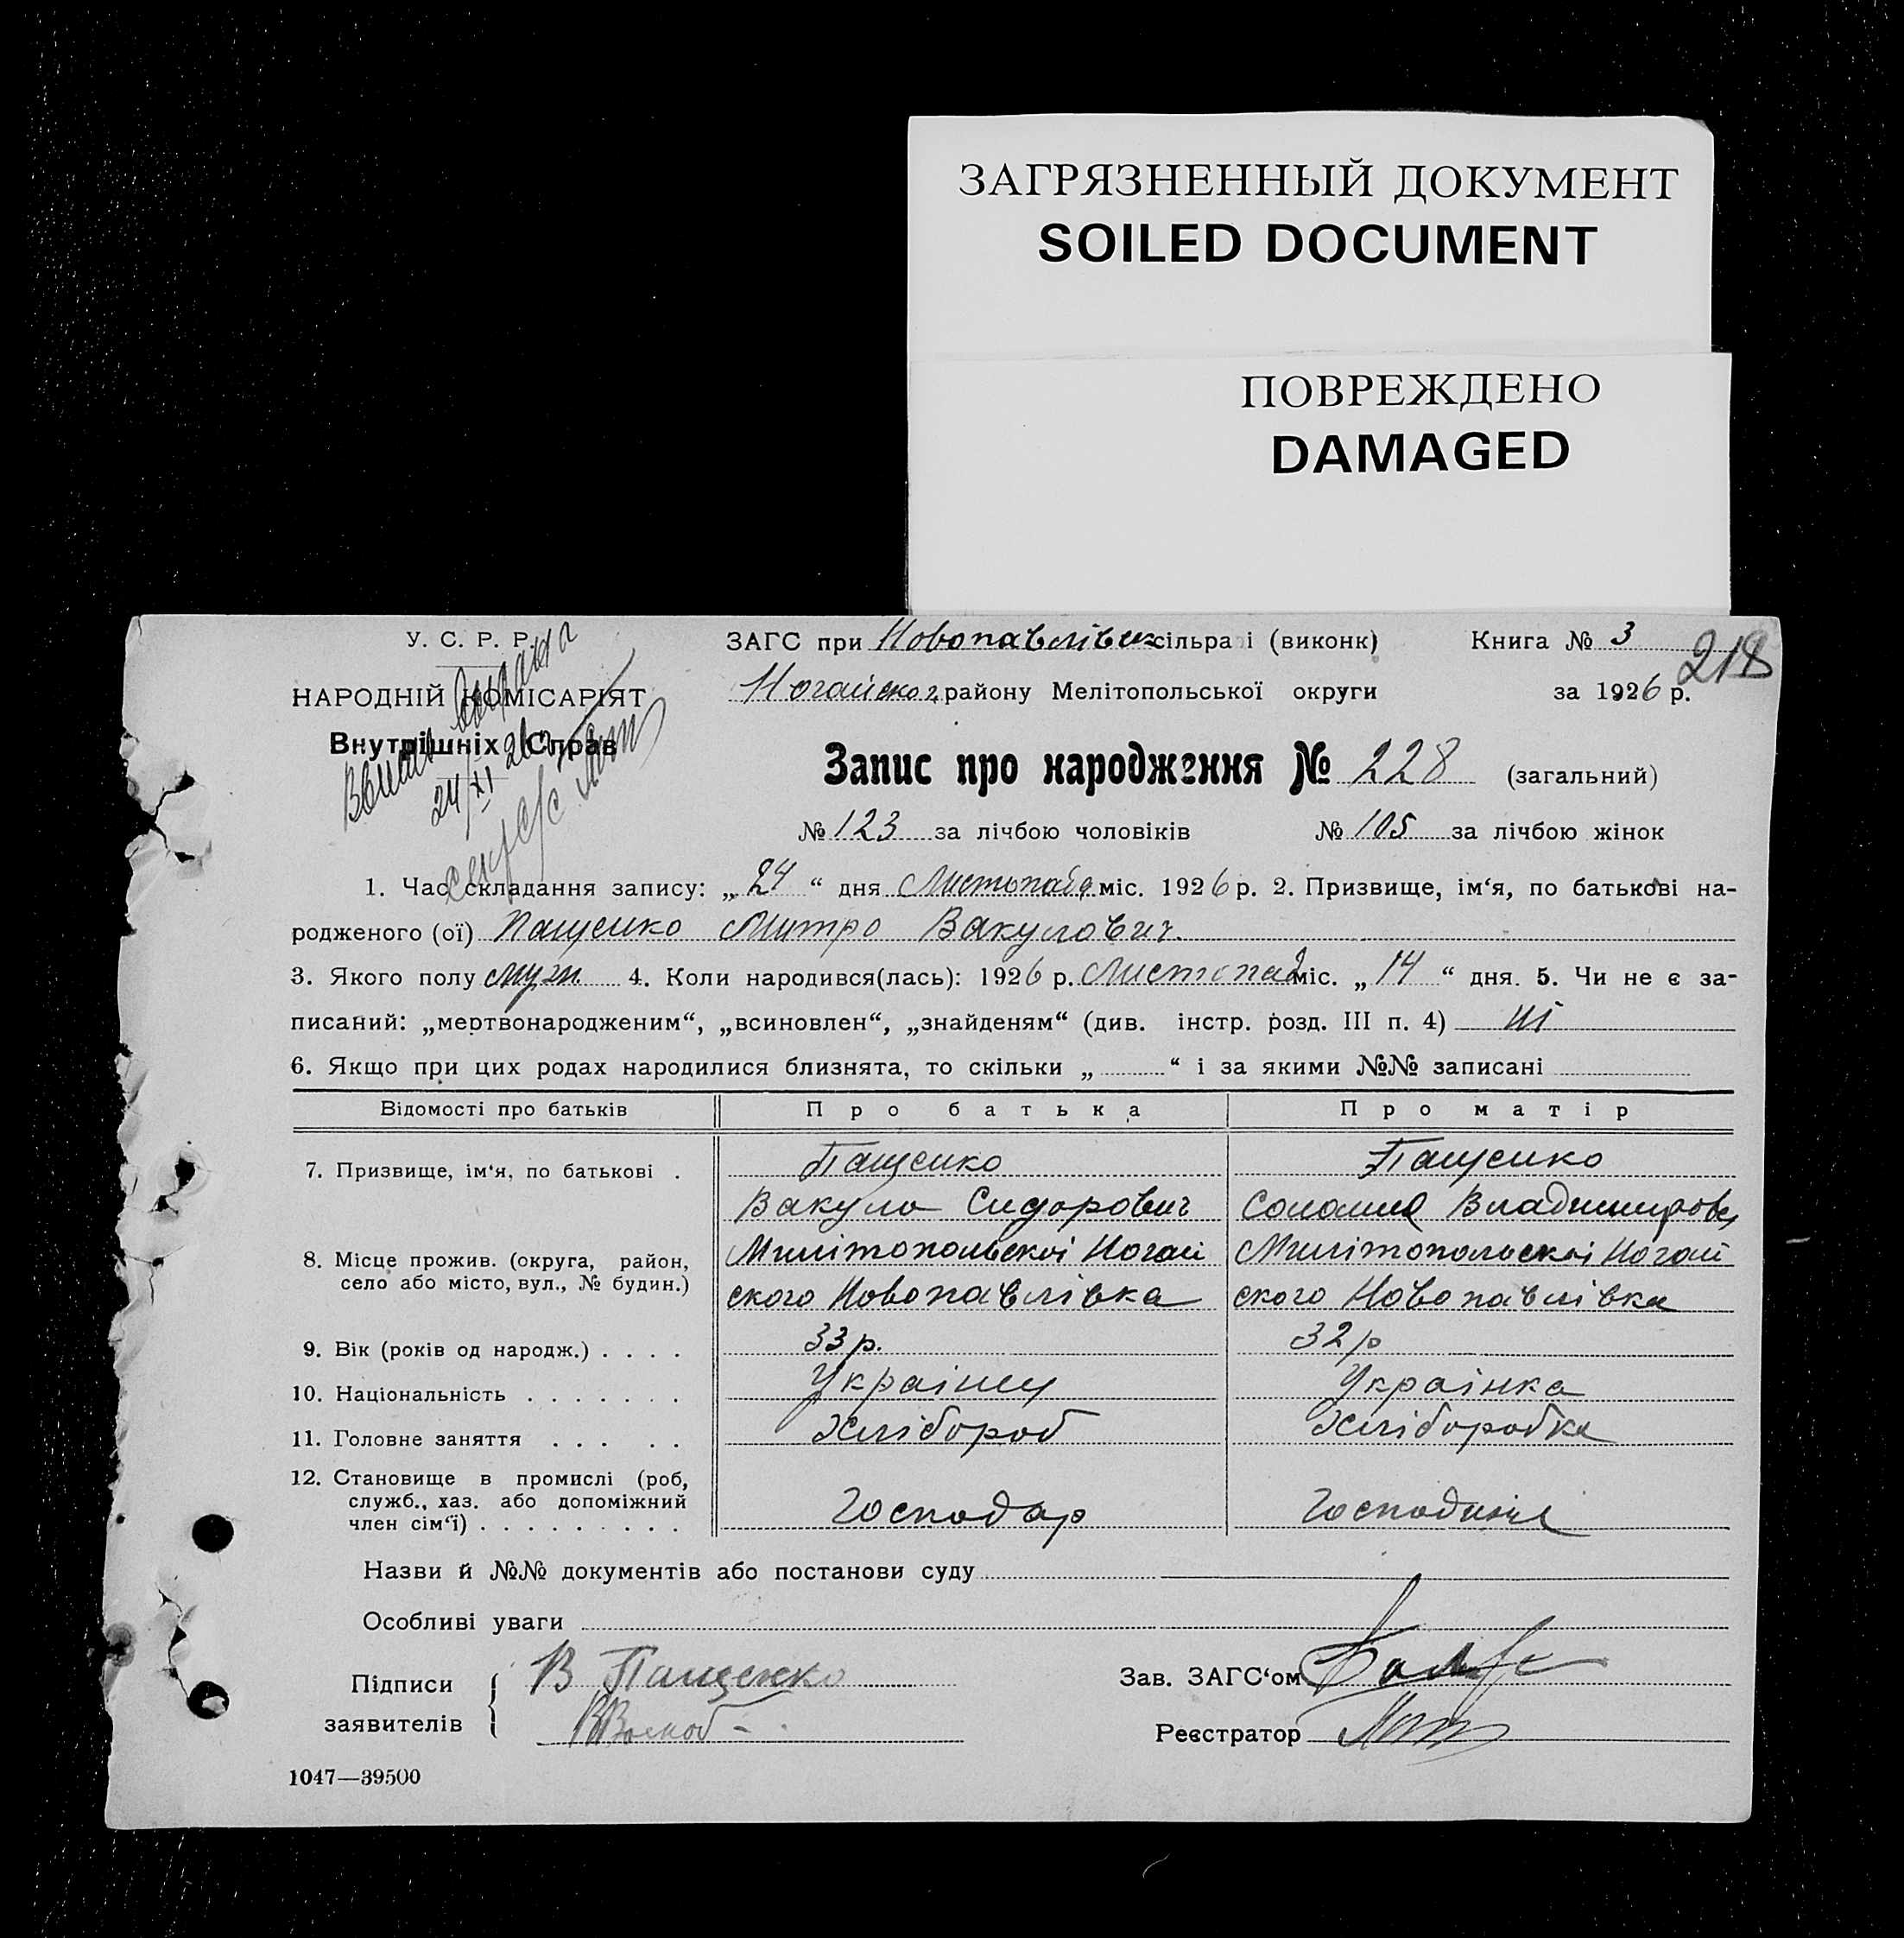 ЗАГРЯЗНЕННЫЙ ДОКУМЕНТ
SOILED DOCUMENT
ПОВРЕЖДЕНО
DAMAGED
У. С. Р. Р.
НАРОДНІЙ КОМІСАРІЯТ
Внутрішніх Справ
24/XI 26
ЗАГС при Новопавлівск сільра і (виконк) Книга № 3
218
Ногайског району Мелітопольської округи за 1926 р.
Запис про народження № 228 (загальний)
№ 123 за лічбою чоловіків № 105 за лічбою жінок
1. Час складання запису: „ 24 “ дня Листопада міс. 1926 р. 2. Призвище, ім‘я, по батькові на-
родженого (ої) Пащенко Митро Вакулович.
3. Якого полу муж. 4. Коли народився(лась): 1926 р. Листопад міс. „ 14 “ дня. 5. Чи не є за-
писаний: „мертвонародженим“, „всиновлен“, „знайденям“ (див. інстр. розд. III п. 4) ні
6. Якщо при цих родах народилися близнята, то скільки „ “ і за якими №№ записані
Відомості про батьків Про батька Про матір
7. Призвище, ім‘я, по батькові . Пащенко Пащенко
Вакула Сидорович Соломия Владимировн
8. Місце прожив. (округа, район, Милітопольскоі Ногай Милітопольскоі Ногай
село або місто, вул., № будин.) ского Новопавлівка ского Новопавлівка
9. Вік (років од народж.) . . . . 33 р. 32 р
10. Національність . . . . . . . Украінец Украінка
11. Головне заняття . . . . . Хлібороб Хлібороbка
12. Становище в промислі (роб,
служб., хаз. або допоміжний
член сім‘ї) . . . . . . . . . Господар Господиня
Назви й №№ документів або постанови суду
Особливі уваги
Підписи В Пащенко Зав. ЗАГС‘ом
заявителів Реєстратор
1047—39500